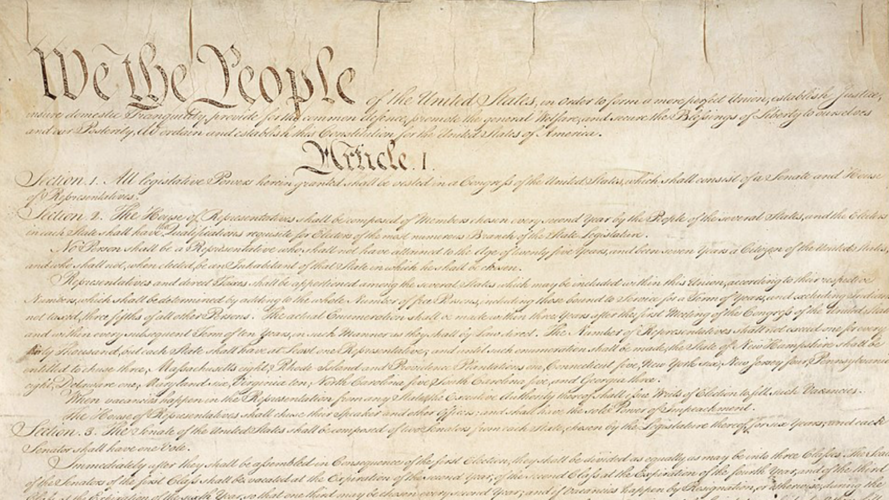 We the People of the United States, in Order to form a more perfect Union, establish Justice,
insure domestic Tranquility, provide for the common defence, promote the general Welfare, and secure the Blessings of Liberty to ourselves
and our Posterity, do ordain and establish this Constitution for the United States of America.
Article. I.
Section. 1. All legislative Powers herein granted shall be vested in a Congress of the United States, which shall consist of a Senate and House
of Representatives.
Section. 2. The House of Representatives shall be composed of Members chosen every second Year by the People of the several States, and the Electors
in each State shall have the Qualifications requisite for Electors of the most numerous Branch of the State Legislature.
No Person shall be a Representative who shall not have attained to the Age of twenty five Years, and been seven Years a Citizen of the United States,
and who shall not, when elected, be an Inhabitant of that State in which he shall be chosen.
Representatives and direct Taxes shall be apportioned among the several States which may be included within this Union, according to their respective
Numbers, which shall be determined by adding to the whole Number of free Persons, including those bound to Service for a Term of Years, and excluding Indians
not taxed, three fifths of all other Persons. The actual Enumeration shall be made within three Years after the first Meeting of the Congress of the United States,
and within every subsequent Term of ten Years, in such Manner as they shall by Law direct. The Number of Representatives shall not exceed one for every
thirty Thousand, but each State shall have at Least one Representative; and until such enumeration shall be made, the State of New Hampshire shall be
entitled to chuse three, Massachusetts eight, Rhode-Island and Providence Plantations one, Connecticut five, New-York six, New Jersey four, Pennsylvania
eight, Delaware one, Maryland six, Virginia ten, North Carolina five, South Carolina five, and Georgia three.
When vacancies happen in the Representation from any State, the Executive Authority thereof shall issue Writs of Election to fill such Vacancies.
The House of Representatives shall chuse their Speaker and other Officers; and shall have the sole Power of Impeachment.
Section. 3. The Senate of the United States shall be composed of two Senators from each State, chosen by the Legislature thereof, for six Years; and each
Senator shall have one Vote.
Immediately after they shall be assembled in Consequence of the first Election, they shall be divided as equally as may be into three Classes. The Seats
of the Senators of the first Class shall be vacated at the Expiration of the second Year, of the second Class at the Expiration of the fourth Year, and of the third
Class at the Expiration of the sixth Year, so that one third may be chosen every second Year; and if Vacancies happen by Resignation, or otherwise, during the